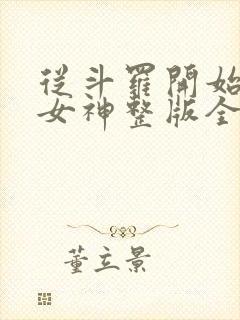 從斗羅開始
女神整版全
董立景